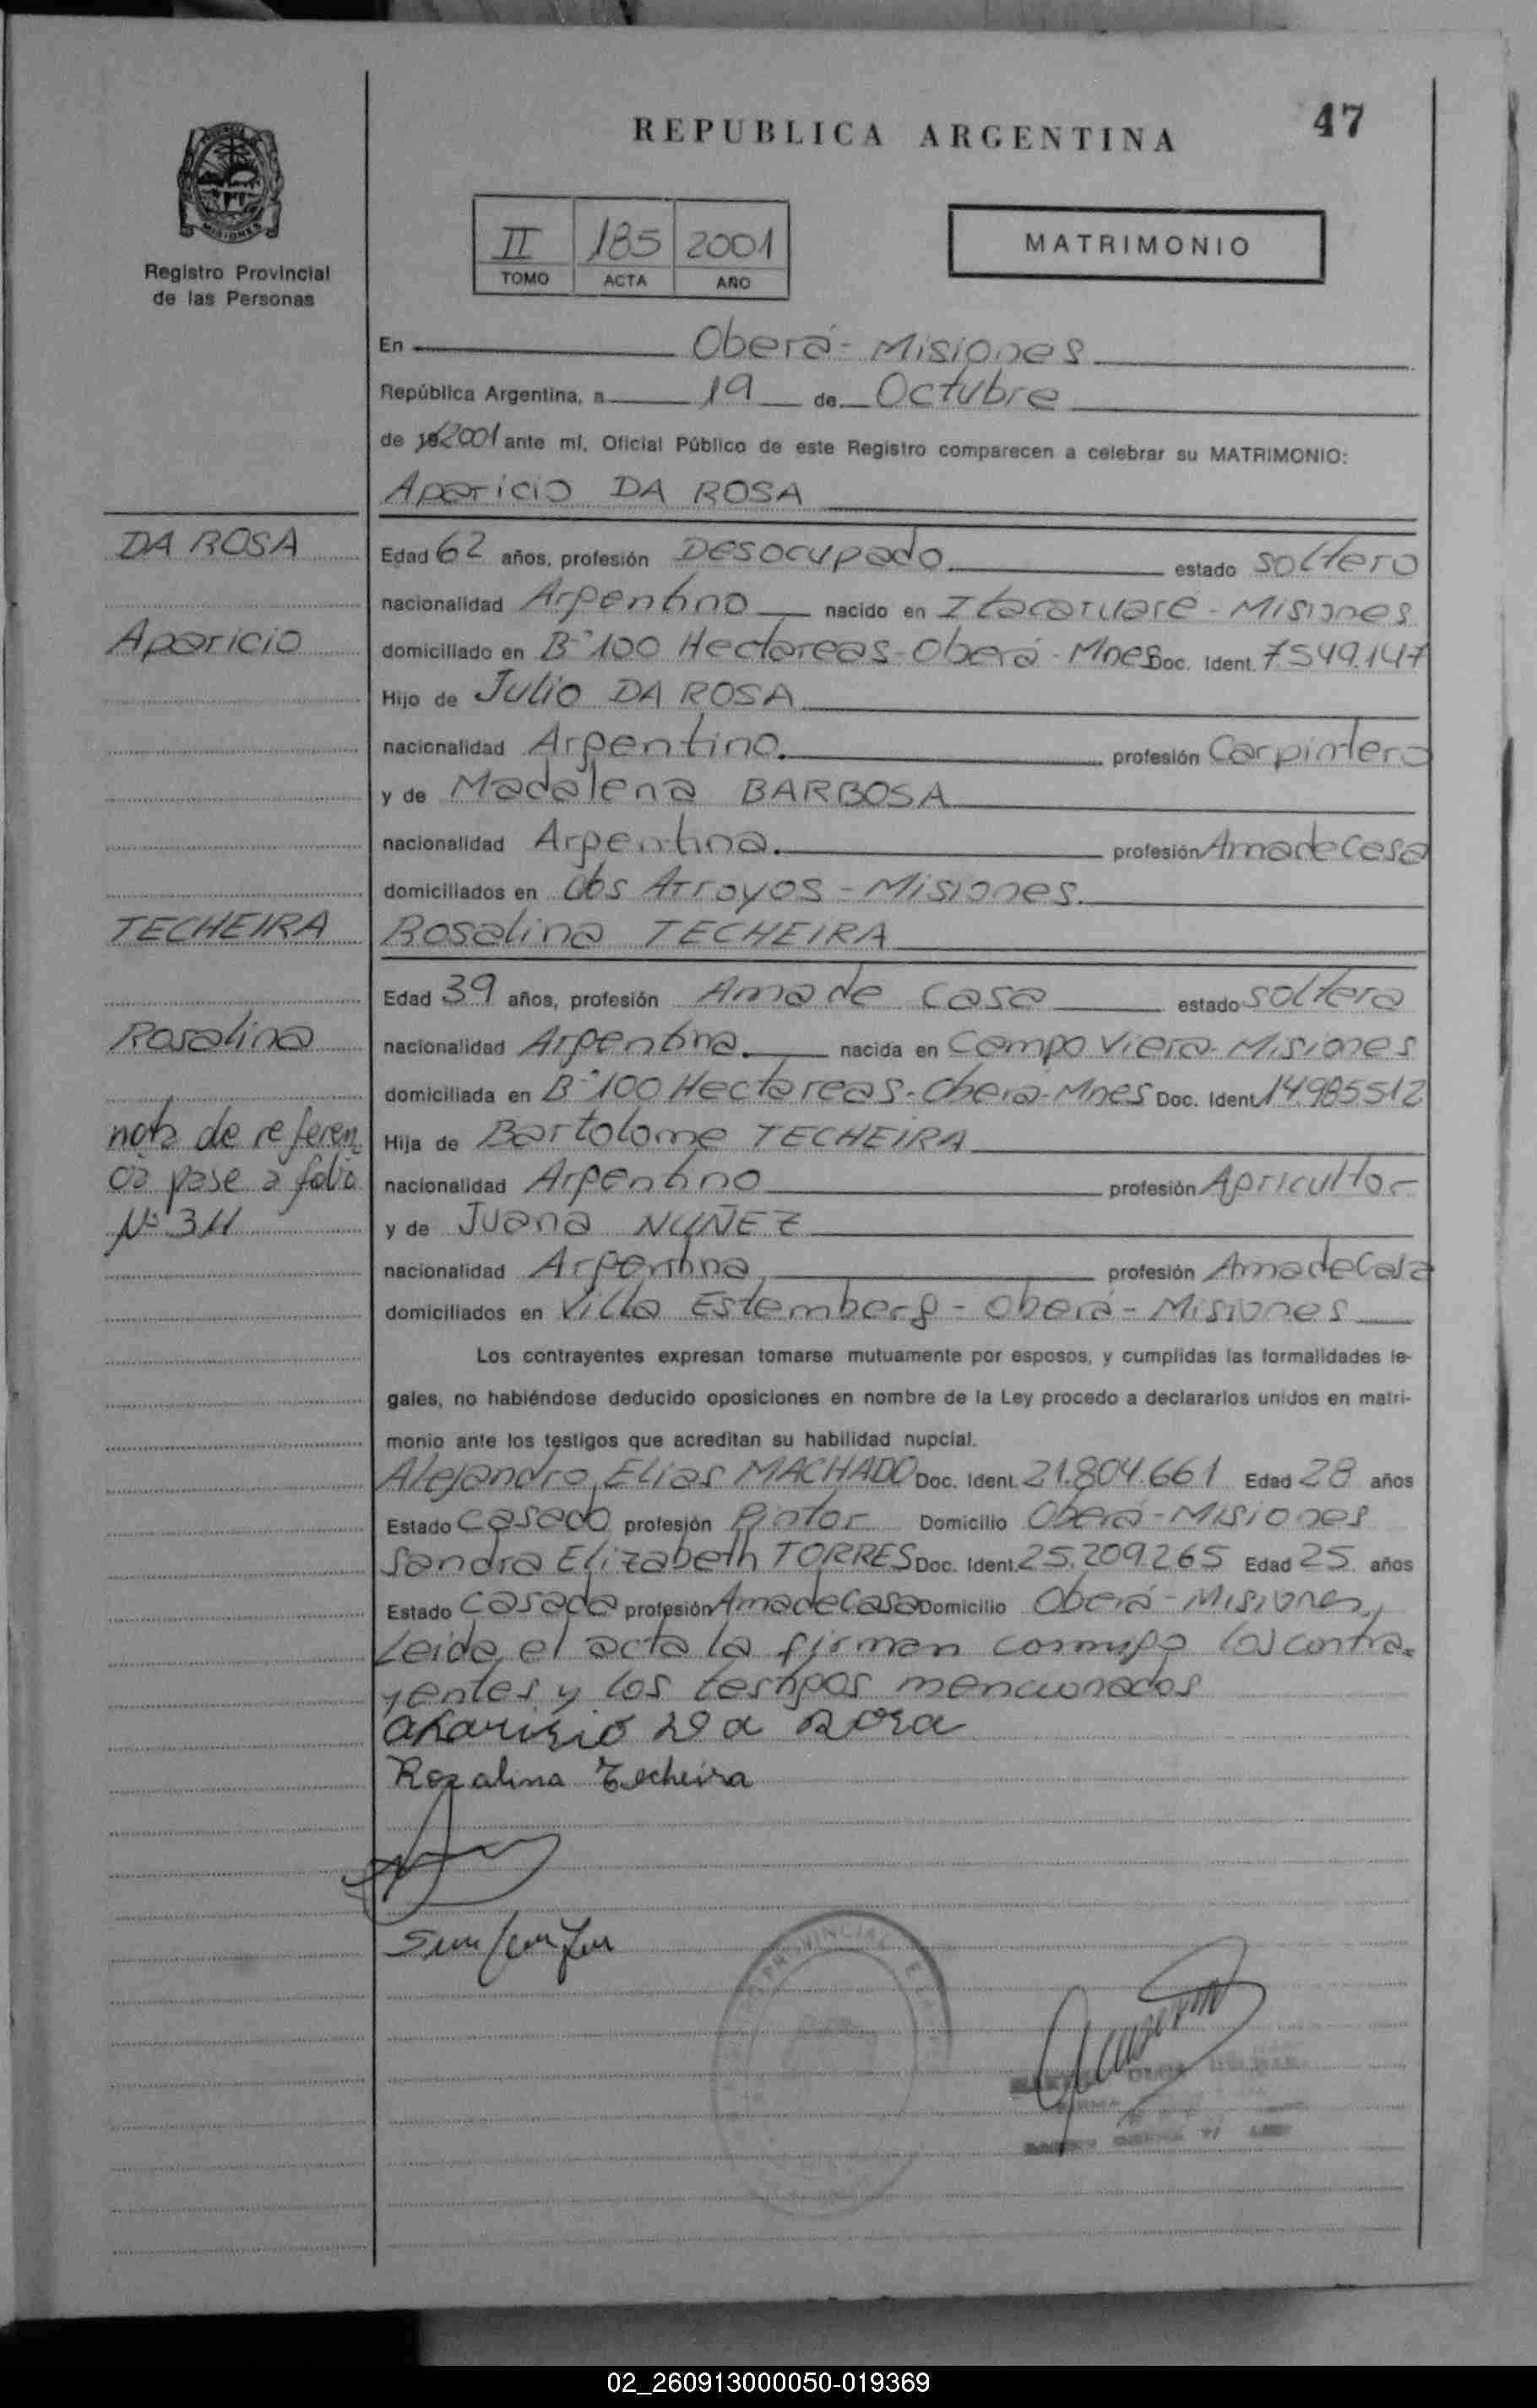 47
REPUBLICA ARGENTINA
MISIONES
Registro Provincial
de las Personas
II 185 2001
TOMO ACTA AÑO
MATRIMONIO
En Oberá - Misiones
República Argentina, a 19 de Octubre
de 2001 ante mí, Oficial Público de este Registro comparecen a celebrar su MATRIMONIO:
Aparicio DA ROSA
DA ROSA
Edad 62 años, profesión Desocupado estado soltero
nacionalidad Argentino nacido en Itacaruaré - Misiones
Aparicio
domiciliado en B° 100 Hectareas - Oberá - Mnes Doc. Ident. 7.549.147
Hijo de Julio DA ROSA
nacionalidad Argentino. profesión Carpintero
y de Madalena BARBOSA
nacionalidad Argentina. profesión Ama de Casa
domiciliados en dos Arroyos - Misiones.
TECHEIRA
Rosalina TECHEIRA
Edad 39 años, profesión Ama de Casa estado soltera
Rosalina
nacionalidad Argentina. nacida en Campo Viera - Misiones
domiciliada en B° 100 Hectareas - Oberá - Mnes Doc. Ident. 14.985512
nota de referen
cia pase a folio
Nº 311
Hija de Bartolome TECHEIRA
nacionalidad Argentino profesión Agricultor
y de Juana NUÑEZ
nacionalidad Argentina profesión Ama de Casa
domiciliados en Villa Estemberg - Oberá - Misiones
Los contrayentes expresan tomarse mutuamente por esposos, y cumplidas las formalidades le-
gales, no habiéndose deducido oposiciones en nombre de la Ley procedo a declararlos unidos en matri-
monio ante los testigos que acreditan su habilidad nupcial.
Alejandro Elias MACHADO Doc. Ident. 21.804.661 Edad 28 años
Estado casado profesión Pintor Domicilio Oberá - Misiones
Sandra Elizabeth TORRES Doc. Ident. 25.209.265 Edad 25 años
Estado casada profesión Ama de Casa Domicilio Oberá - Misiones,
Leida el acta la firman conmigo los contra-
yentes y los testigos mencionados
aparisio Da Rosa
Rozalina Techeira
PROVINCIAL
02_260913000050-019369